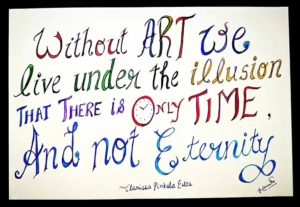 Without ART we
live under the illusion
THAT THERE is ONLY TIME,
And not Eternity
~Clarissa Pinkola Estes